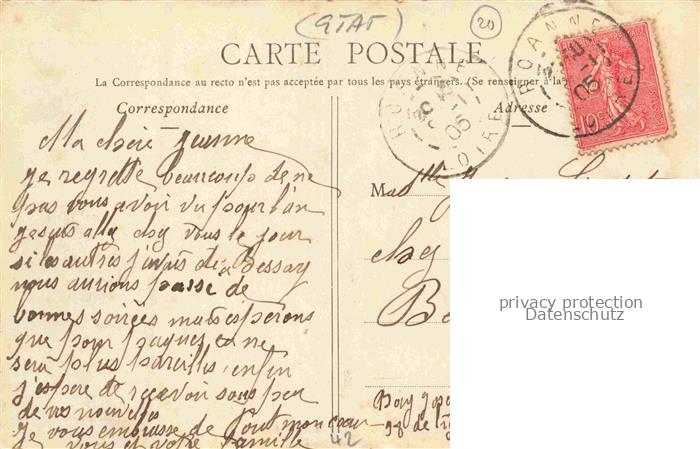 (GTAT)
20
CARTE POSTALE
La Correspondance au recto n'est pas acceptée par tous les pays étrangers. (Se renseigner à la
Correspondance
Adresse
ROANNE
LOIRE
05
ROANNE
LOIRE
05
10c
Ma chère Jeanne
je regrette beaucoup de ne
pas vous avoir vu pour l'an
je suis allé chez vous le jour
si les autres j'avais de à Bessay
nous aurions passé de
bonnes soirées mais espérons
que pour paques ça ne
sera plus pareilles enfin
j'espere de recevoir sous peu
de vos nouvelles
je vous embrasse de tout mon coeur
vous et votre famille
M
chez
privacy protection
Datenschutz
42